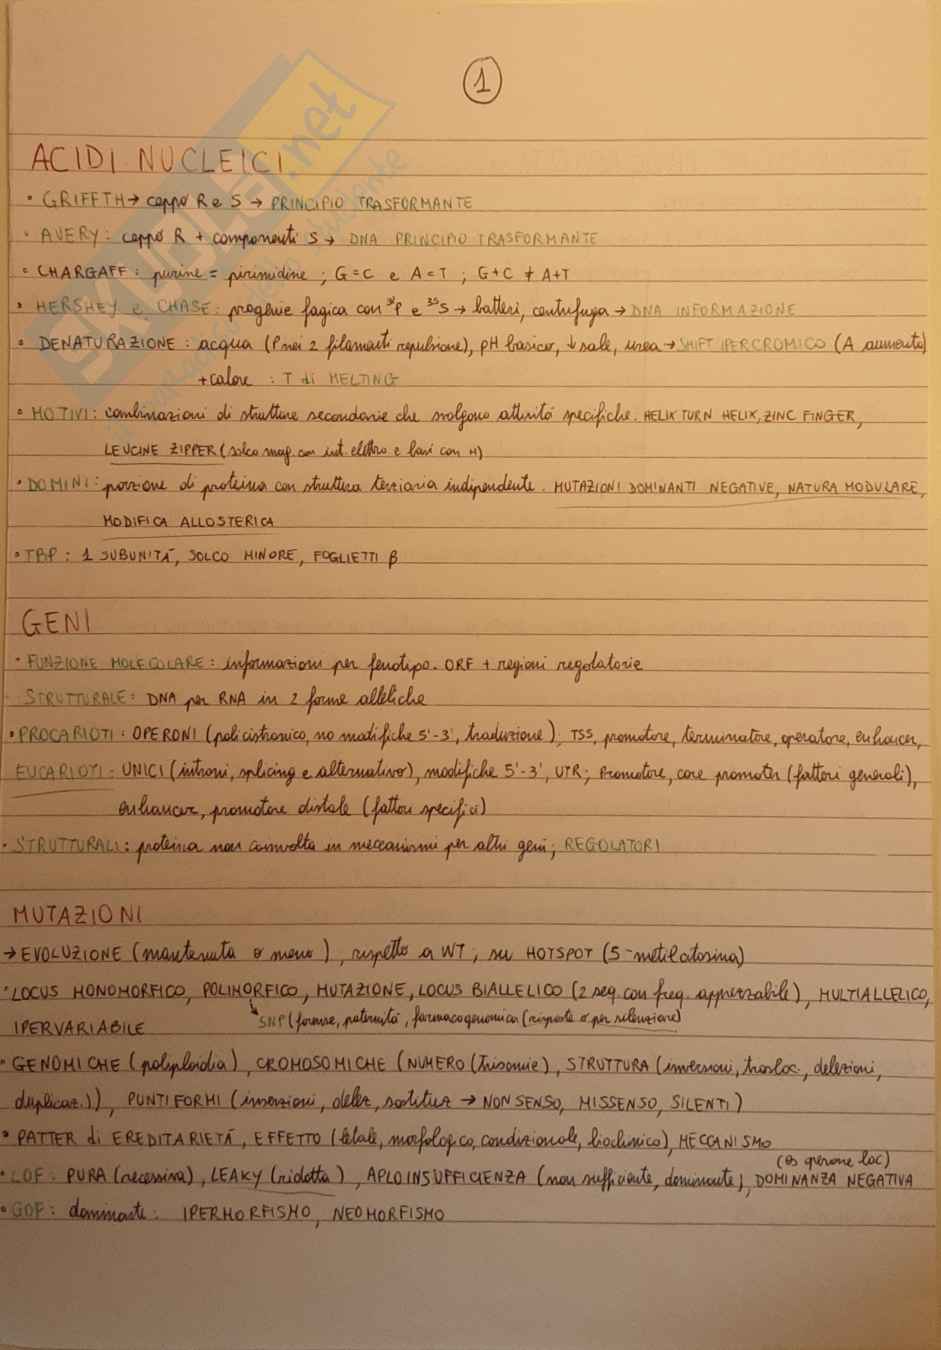 1
ACIDI NUCLEICI
• GRIFFTH → ceppo R e S → PRINCIPIO TRASFORMANTE
• AVERY: ceppo R + componenti S → DNA PRINCIPIO TRASFORMANTE
• CHARGAFF: purine = pirimidine ; G=C e A=T ; G+C ≠ A+T
• HERSHEY e CHASE: progenie fagica con ³²P e ³⁵S → batteri, centrifuga → DNA INFORMAZIONE
• DENATURAZIONE: acqua (P nei 2 filamenti repulsione), pH basico, ↓ sale, urea → SHIFT IPERCROMICO (A aumenta)
+ calore : T di MELTING
• MOTIVI: combinazioni di strutture secondarie che svolgono attività specifiche. HELIX TURN HELIX, ZINC FINGER,
LEUCINE ZIPPER (solco mag. con int. elettro e basi con H)
• DOMINI: porzione di proteina con struttura terziaria indipendente. MUTAZIONI DOMINANTI NEGATIVE, NATURA MODULARE,
MODIFICA ALLOSTERICA
• TBP: 1 SUBUNITÁ, SOLCO MINORE, FOGLIETTI β
GENI
• FUNZIONE MOLECOLARE: informazioni per fenotipo. ORF + regioni regolatorie
• STRUTTURALE: DNA per RNA in 2 forme alleliche
• PROCARIOTI: OPERONI (policistronico, no modifiche 5'-3', traduzione), TSS, promotore, terminatore, operatore, enhancer,
EUCARIOTI: UNICI (introni, splicing e alternativo), modifiche 5'-3', UTR; Promotore, core promoter (fattori generali),
enhancer, promotore distale (fattori specifici)
• STRUTTURALI: proteina non coinvolta in meccanismi per altri geni; REGOLATORI
MUTAZIONI
→ EVOLUZIONE (mantenuta o meno), rispetto a WT; su HOTSPOT (5-metilcitosina)
• LOCUS MONOMORFICO, POLIMORFICO, MUTAZIONE, LOCUS BIALLELICO (2 seq. con freq. apprezzabile), MULTIALLELICO,
IPERVARIABILE ↳ SNP (forense, paternità, farmacogenomica (risposte o per selezione)
• GENOMICHE (poliploidia), CROMOSOMICHE (NUMERO (trisomie), STRUTTURA (inversioni, trasloc., delezioni,
duplicaz.)), PUNTIFORMI (inserzioni, delez, sostituz → NON SENSO, MISSENSO, SILENTI)
• PATTER di EREDITARIETÁ, EFFETTO (letale, morfologico, condizionale, biochimico), MECCANISMO
(es operone lac)
• LOF: PURA (recessiva), LEAKY (ridotta), APLOINSUFFICIENZA (non sufficiente, dominante), DOMINANZA NEGATIVA
• GOF: dominante: IPERMORFISMO, NEOMORFISMO
SKUOLA.net